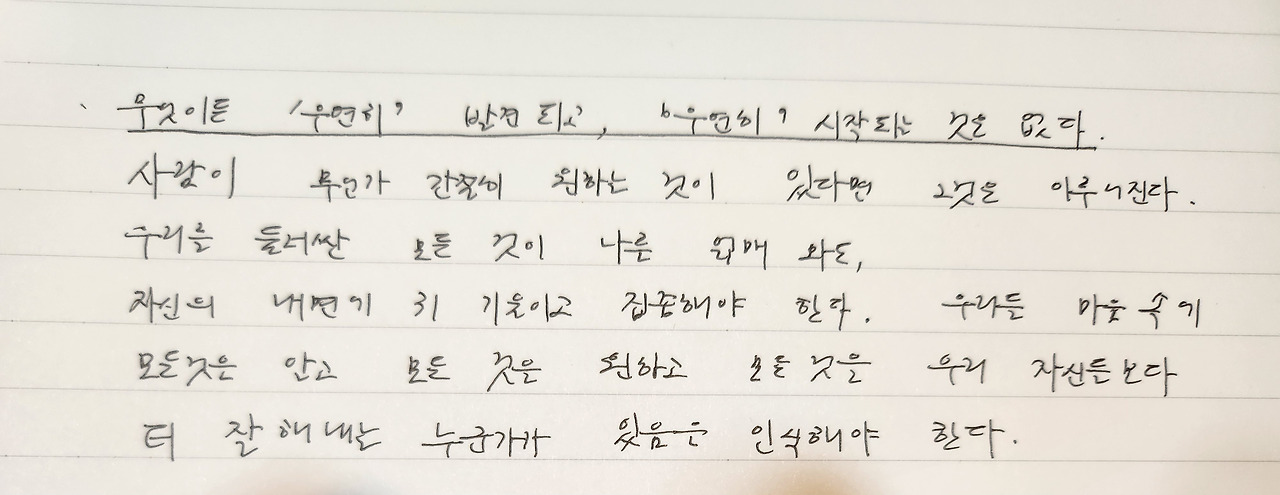 무엇이든 '우연히' 발견되고, '우연히' 시작되는 것은 없다.
사람이 무언가 간절히 원하는 것이 있다면 그것은 이루어진다.
우리를 둘러싼 모든 것이 나를 외면해 와도,
자신의 내면에 귀 기울이고 집중해야 한다. 우리들 마음 속에
모든것은 안고 모든 것을 원하고 모든 것을 우리 자신들보다
더 잘 해내는 누군가가 있음은 인식해야 한다.